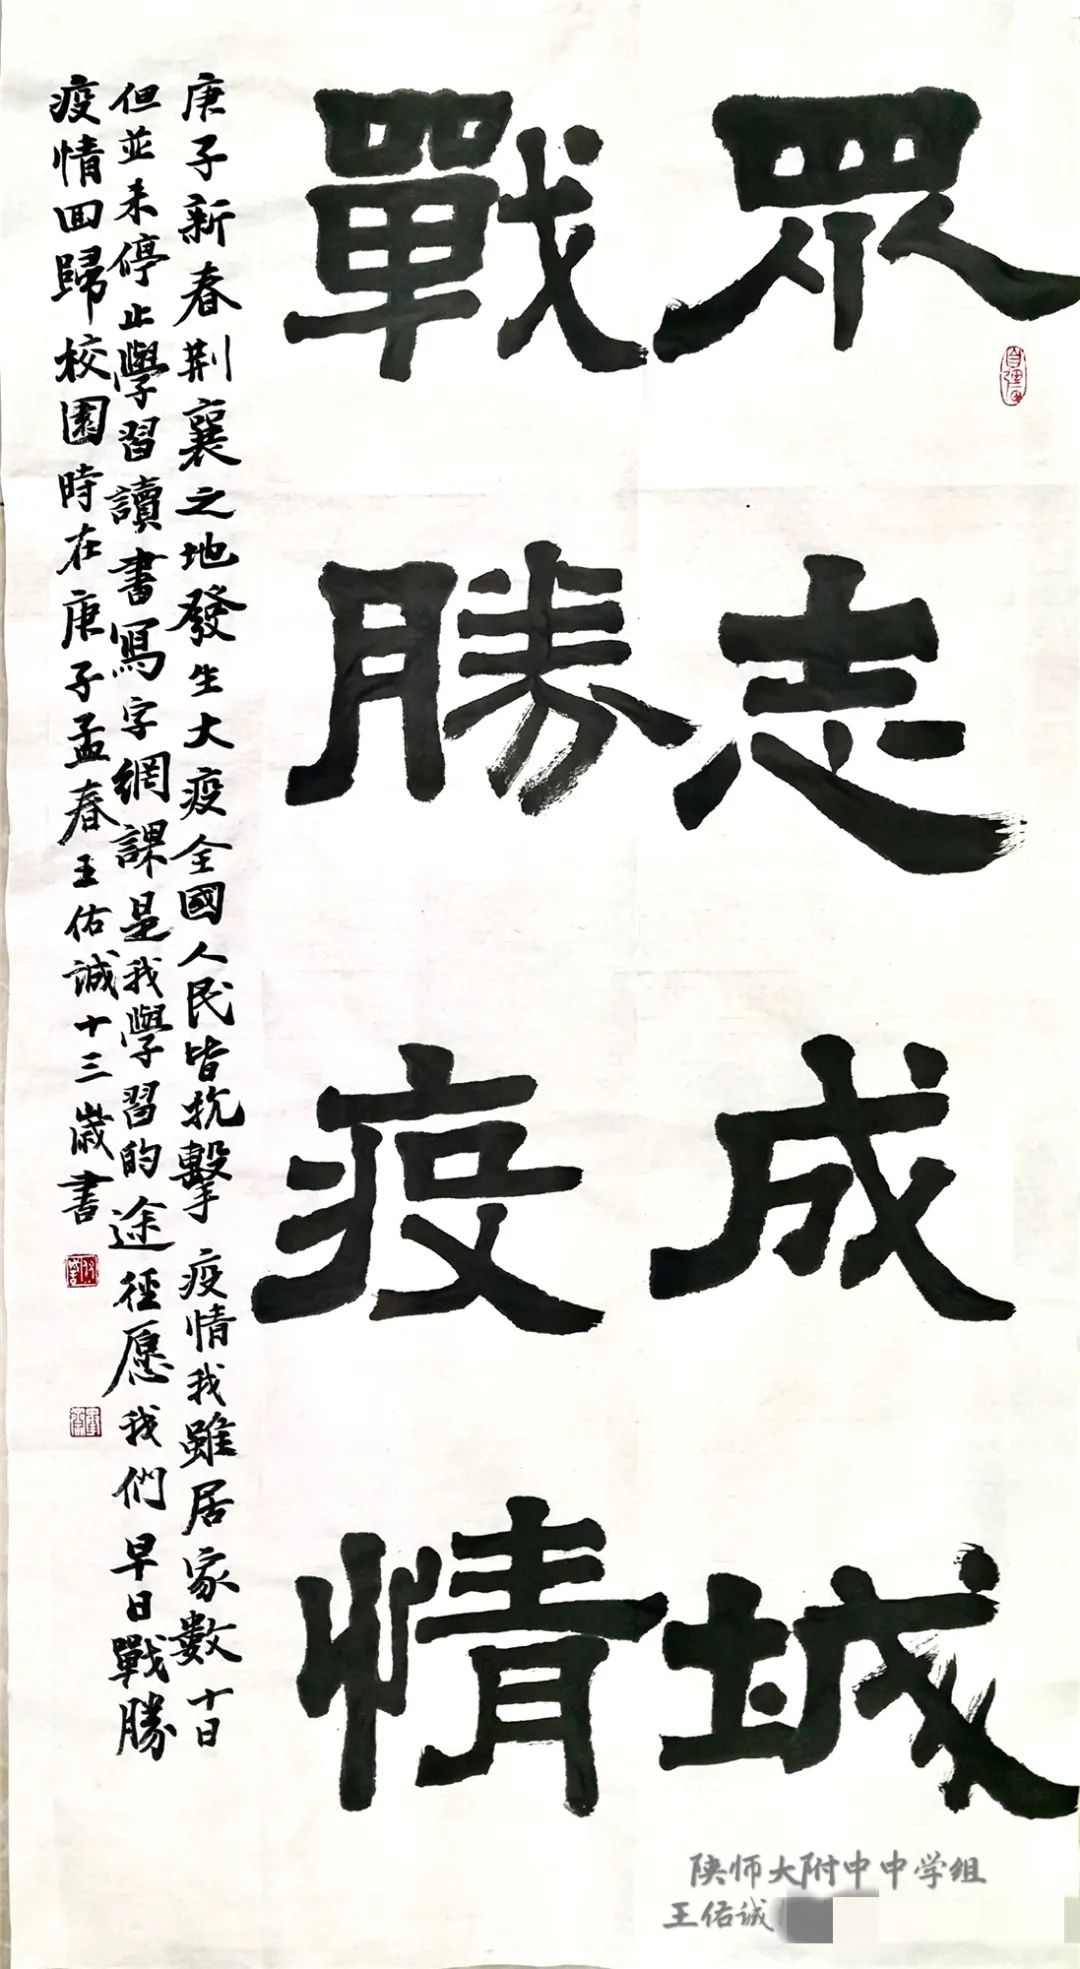 眾志成城
戰勝疫情
庚子新春荆襄之地發生大疫全國人民皆抗擊疫情我雖居家數十日
但並未停止學習讀書寫字網課是我學習的途徑愿我們早日戰勝
疫情回歸校園時在庚子孟春王佑誠十三歲書
陕师大附中中学组
王佑诚